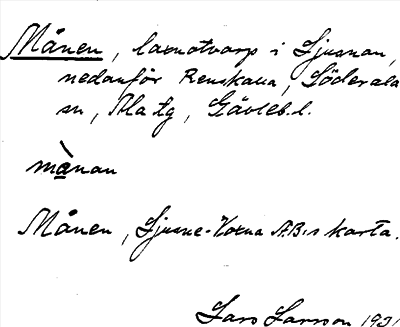 Månen, laxnotvarp i Ljusnan,
nedanför Renskalla, Söderala
sn, Ala tg, Gävleb.l.
månan
Månen, Ljusne-Woxna AB:s karta.
Lars Larsson 1931